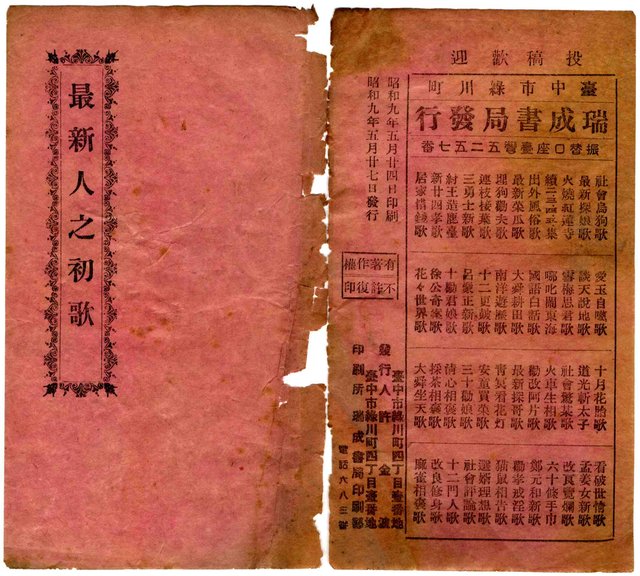 最新人之初歌
投稿歡迎
臺中市綠川町
瑞成書局發行
振替口座臺灣五二五七番
社會烏狗歌
最新探娘歌
火燒紅蓮寺
續二三四五集
出外風俗歌
最新菜瓜歌
埋狗勸夫歌
連枝接葉歌
三勇士新歌
紂王造鹿臺
新廿四孝歌
居家借錢歌
愛玉自嘆歌
談天說地歌
雪梅思君歌
哪叱鬧東海
國語白話歌
大舜耕田歌
南洋遊歷歌
十二更鼓歌
呂蒙正新歌
十勸君娘歌
徐公奇案歌
花々世界歌
十月花胎歌
道光斬太子
社會驚某歌
火車生相歌
勸改阿片歌
最新探哥歌
青冥看花灯
安童買菜歌
三十勸娘歌
清心相褒歌
採茶相褒歌
大舜坐天歌
看破世情歌
孟姜女新歌
改良覽爛歌
六十條手巾
鄭元和新歌
勸孝戒淫歌
猫鼠相告歌
選婿理想歌
社會評論歌
十二門人歌
改良修身歌
麻雀相褒歌
昭和九年五月廿四日印刷
昭和九年五月廿七日發行
有著作權
不許復印
臺中市綠川町四丁目壹番地
發行人 許金波
臺中市綠川町四丁目壹番地
印刷所 瑞成書局印刷部
電話六八三番